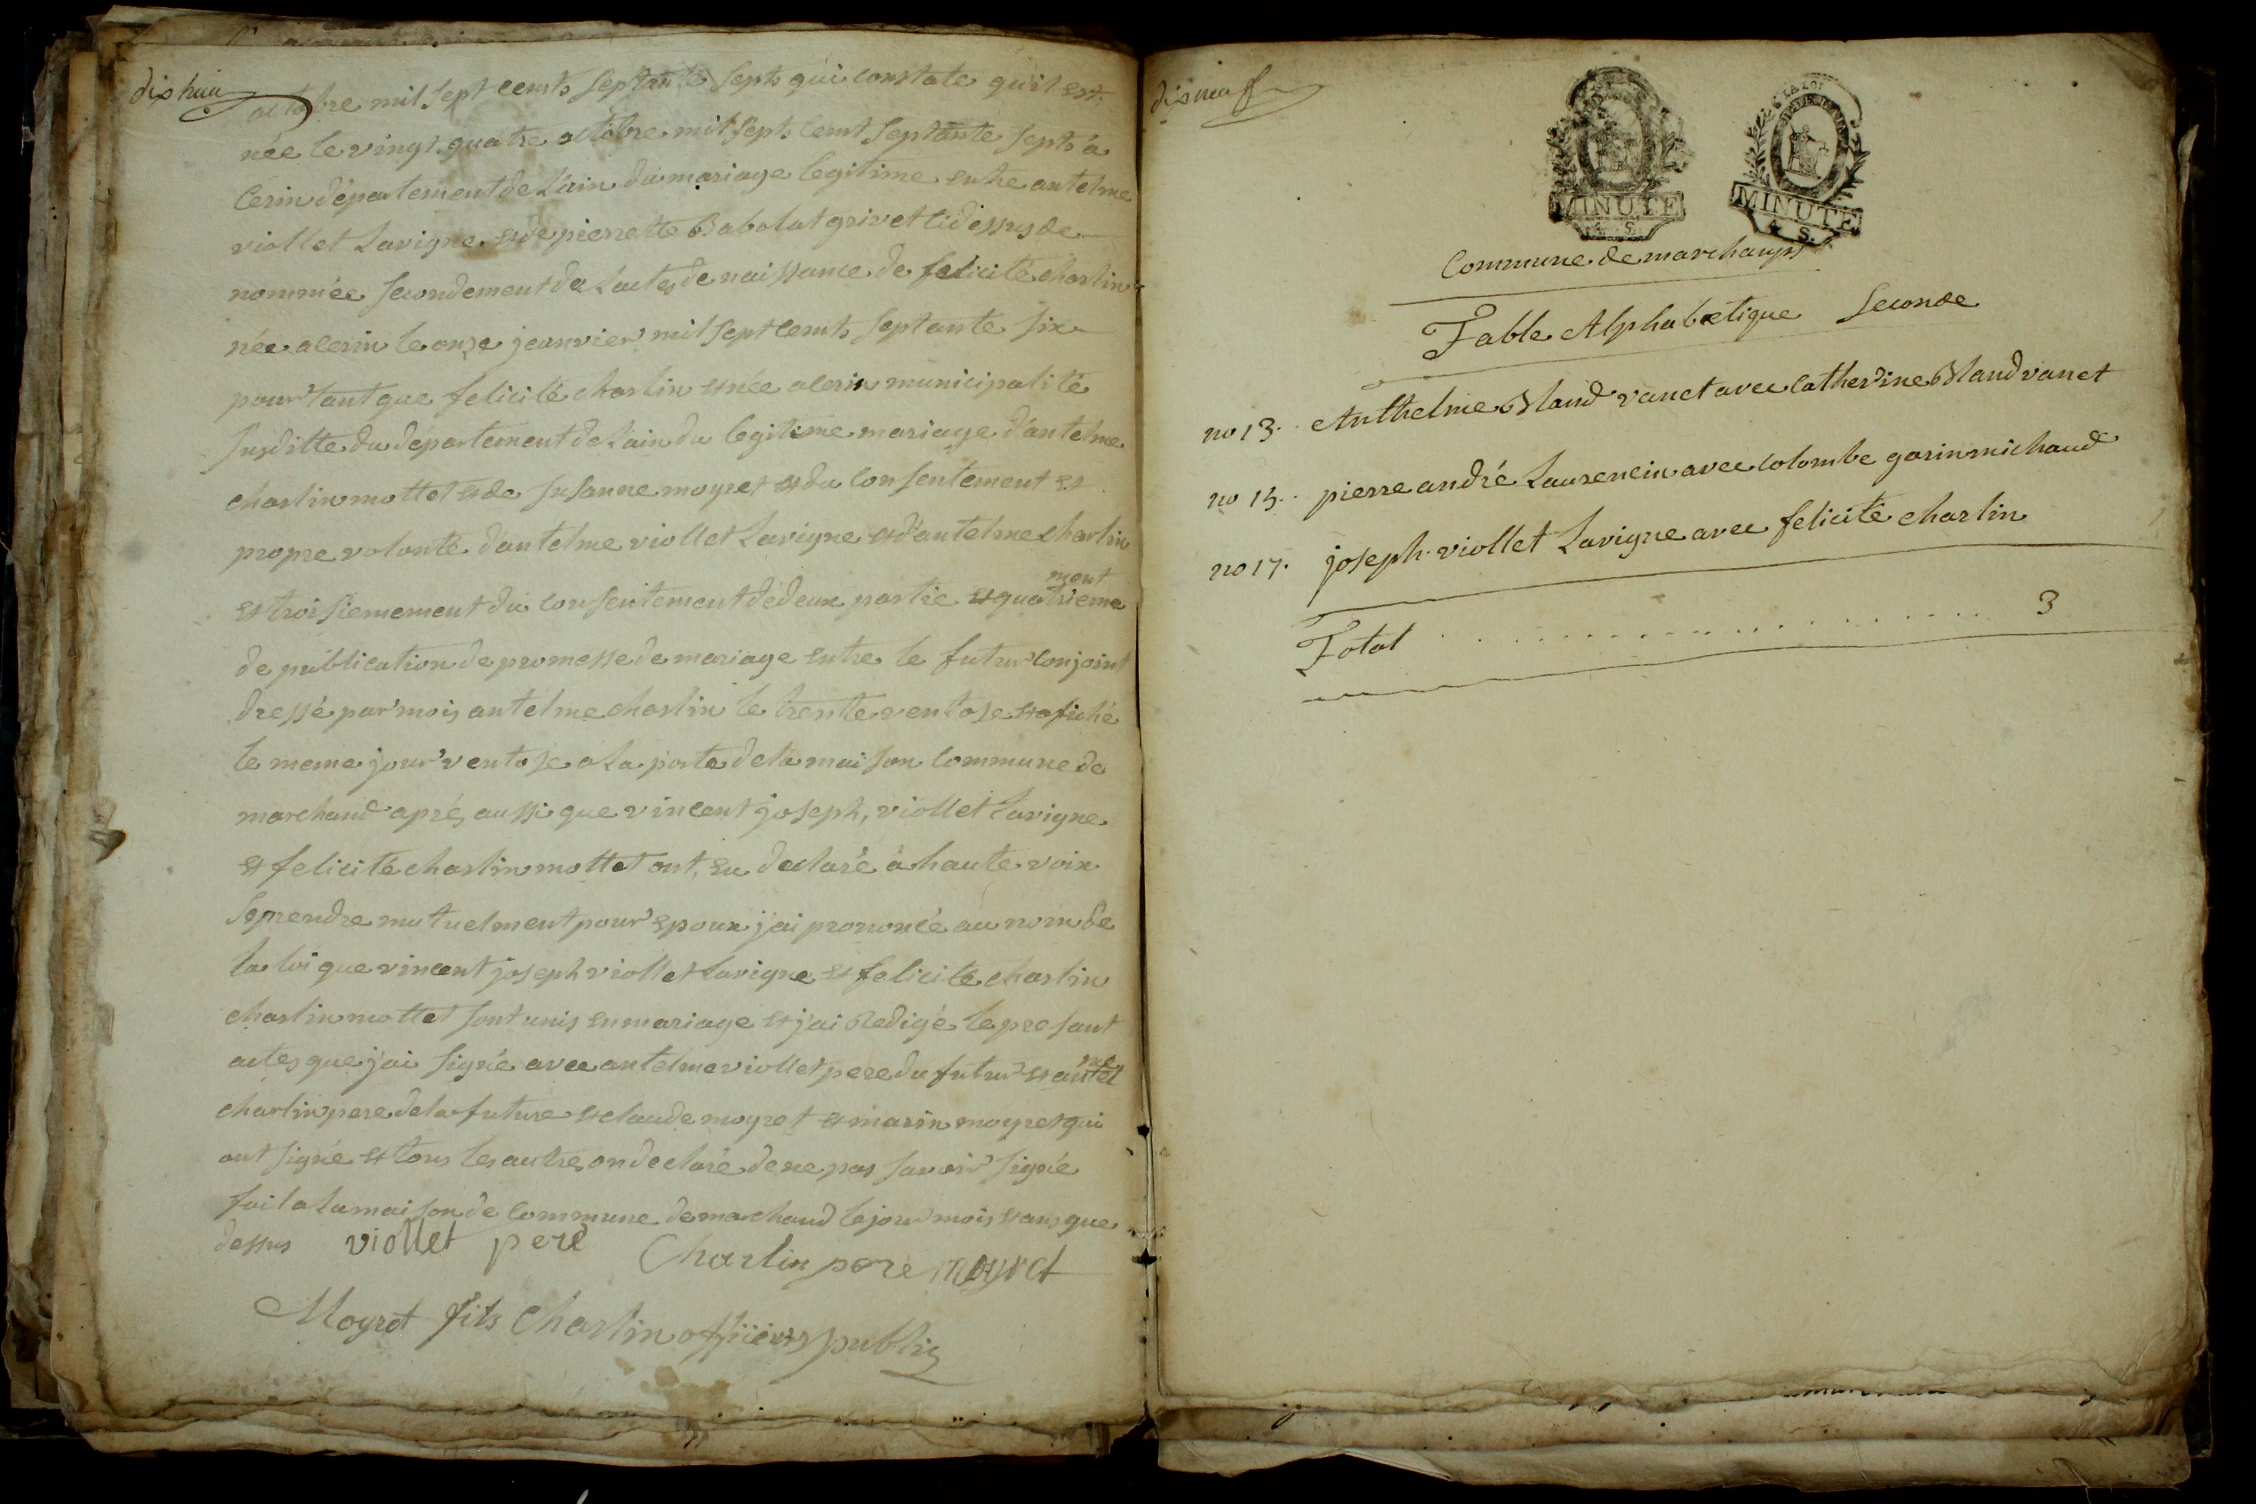 dix huit
octobre mil sept cents septante septs qui constate quil est
née le vingt quatre octobre mil septs cent septante septs à
Cerin département de L'ain du mariage legitime entre antelme
viollet Lavigne et de pierrette Babolat grivet cidessus de
nommée secondement de Lactes de naissance de felicité charlin
née a cerin le onze jeanvier mil sept cents septante six
pour tant que felicité charlin et née a cerin municipalité
susditte du département de L'ain du legitime mariage d'antelme
charlin mottet et de susanne moyret et du consentement et
propre volonté dantelme viollet Lavigne et d'antelme charlin
et troisiemement du consentement de deux partie et quatrieme
ment
de publication de promesse de mariage entre le futur conjoint
dressé par mois antelme charlin le trente ventose et afiché
le meme jour ventose a La porte de la maison commune de
marchand aprés aussi que vincent joseph, viollet Lavigne
et felicité charlin mottet ont eu declaré à haute voix
se prendre mutuelment pour epoux j'ai prononcé au nom de
la loi que vincent joseph viollet Lavigne et felicité charlin
charlin mottet sont unis en mariage et j'ai Redigé le presant
actes que j'ai signé avec antelme viollet pere du futur et antel
me
charlin pere de la future et claude moyret et marin moyret qui
ont signé et tous les autres on declaré de ne pas savoir signée
fait a La maison de commune de marchand le jour mois et ans que
dessus viollet pere Charlin pere moyret
Moyret fils Charlin officiers public
dix neuf
LA LOI
MINUTE
4 S.
MINUTE
4 S.
Commune de marchamps
Table Alphabetique Seconde
no 13. Anthelme Bland vanet avec Catherine Bland vanet
no 15. pierre andré Laurencin avec Colombe garin michaud
no 17. joseph viollet Lavigne avec felicité charlin
Total . . . . . . . . . . . . . . . . 3